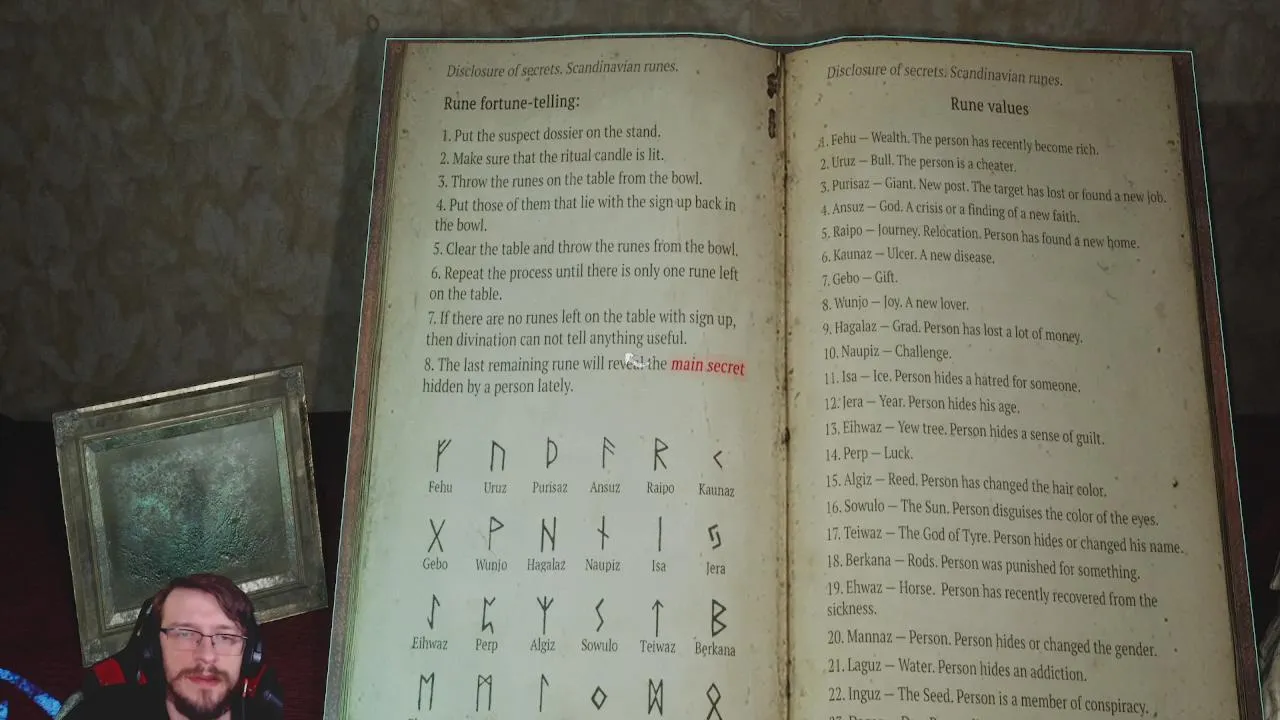 Disclosure of secrets. Scandinavian runes.
Rune fortune-telling:
1. Put the suspect dossier on the stand.
2. Make sure that the ritual candle is lit.
3. Throw the runes on the table from the bowl.
4. Put those of them that lie with the sign up back in
the bowl.
5. Clear the table and throw the runes from the bowl.
6. Repeat the process until there is only one rune left
on the table.
7. If there are no runes left on the table with sign up,
then divination can not tell anything useful.
8. The last remaining rune will reveal the main secret
hidden by a person lately.
Fehu Uruz Purisaz Ansuz Raipo Kaunaz
Gebo Wunjo Hagalaz Naupiz Isa Jera
Eihwaz Perp Algiz Sowulo Teiwaz Berkana
Disclosure of secrets. Scandinavian runes.
Rune values
1. Fehu — Wealth. The person has recently become rich.
2. Uruz — Bull. The person is a cheater.
3. Purisaz — Giant. New post. The target has lost or found a new job.
4. Ansuz — God. A crisis or a finding of a new faith.
5. Raipo — Journey. Relocation. Person has found a new home.
6. Kaunaz — Ulcer. A new disease.
7. Gebo — Gift.
8. Wunjo — Joy. A new lover.
9. Hagalaz — Grad. Person has lost a lot of money.
10. Naupiz — Challenge.
11. Isa — Ice. Person hides a hatred for someone.
12. Jera — Year. Person hides his age.
13. Eihwaz — Yew tree. Person hides a sense of guilt.
14. Perp — Luck.
15. Algiz — Reed. Person has changed the hair color.
16. Sowulo — The Sun. Person disguises the color of the eyes.
17. Teiwaz — The God of Tyre. Person hides or changed his name.
18. Berkana — Rods. Person was punished for something.
19. Ehwaz — Horse. Person has recently recovered from the
sickness.
20. Mannaz — Person. Person hides or changed the gender.
21. Laguz — Water. Person hides an addiction.
22. Inguz — The Seed. Person is a member of conspiracy.